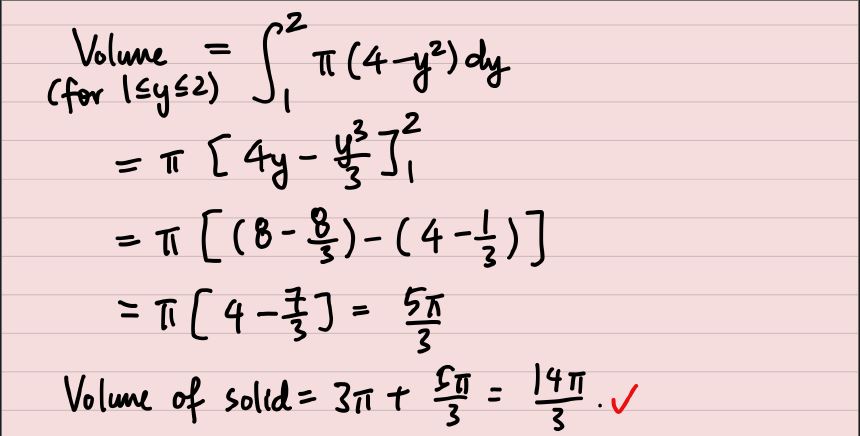 Volume = ∫₁² π(4−y²)dy
(for 1≤y≤2)
= π [4y − y³/3]₁²
= π [(8 − 8/3) − (4 − 1/3)]
= π [4 − 7/3] = 5π/3
Volume of solid = 3π + 5π/3 = 14π/3 . ✓